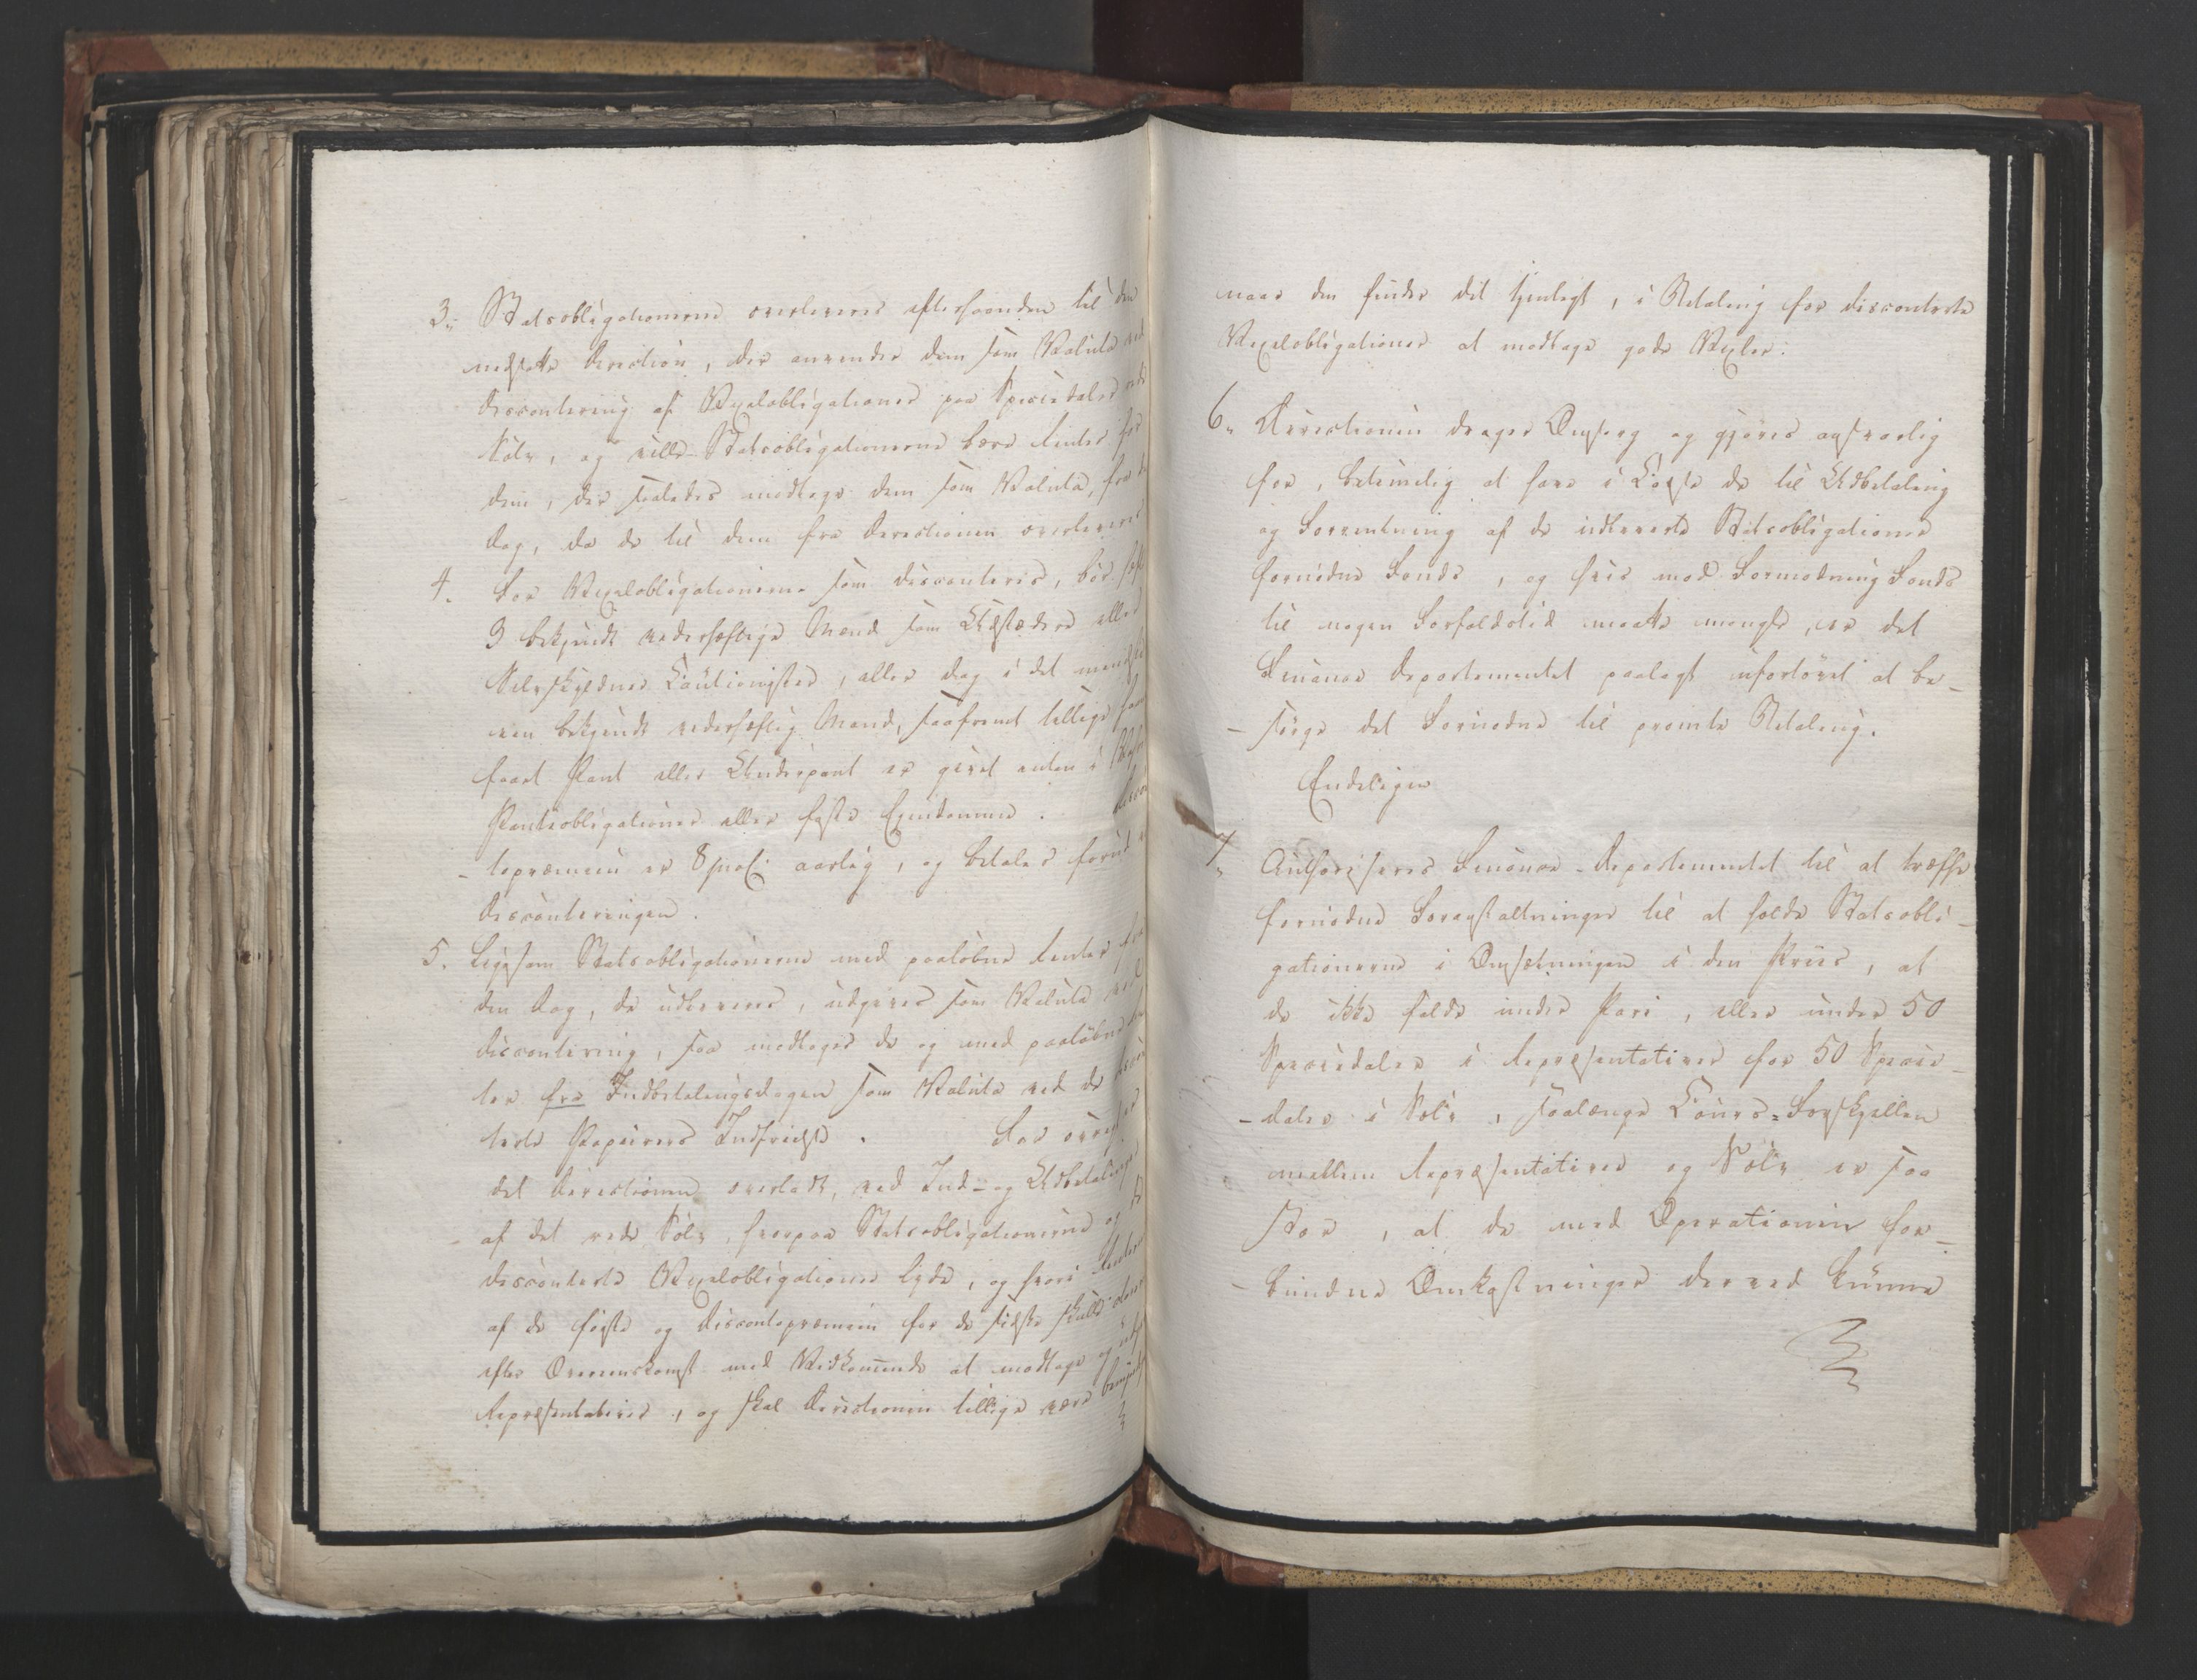 3. Statsobligationerne overleveres efterhaanden til den
nedsatte Direction, der anvender dem som Valuta ved
Discontering af Vexelobligationer paa Speciedaler
Sølv, og ville Statsobligationerne bære Renter for
dem, der saaledes modtage dem som Valuta, fra den
Dag, da de til dem fra Directionen overleveres
4. For Vexelobligationerne som disconteres, bør
3 bekjendt vederhæftige Mænd som Udstædere eller
Selvskyldner Cautionister, eller dog i det mindste
een bekjendt vederhæftig Mand, saafremt tillige
Pant eller Underpant er givet enten i
Panteobligationer eller faste Ejendomme. Discon
-topræmien er 8 proC: aarlig, og betales forud
Disconteringen.
5. Ligesom Statsobligationerne med paaløbne Renter fra
den Dag, de udleveres, udgives som Valuta ved
Discontering, saa modtages de og med paaløbne Ren
ter fra Indbetalingsdagen som Valuta ved de discon
terte Papirers Indfrielse. For øvrigt
det Directionen overladt, ved Ind- og Udbetalinger
af det rede Sølv, hvorpaa Statsobligationerne og de
disconterte Vexelobligationer lyde, og hvori Renterne
af de første og Discontopræmien for de sidste skulle
efter Overeenskomst med Vedkommende at modtage og
Repræsentativer, og skal Directionen tillige være bemyndiget
naar den finder det tjenligt, i Betaling for disconterte
Vexelobligationer at modtage gode Vexler.
6. Directionen drager Omsorg og gjøres ansvarlig
for, betimelig at have i Casse de til Udbetaling
og Forrentning af de udleverte Statsobligationer
fornødne Fonds, og hvis mod Formodning Fonds
til nogen Forfaldstid maatte mangle, er det
Finance Departementet paalagt ufortøvet at be-
- sørge det Fornødne til prompte Betaling.
Endeligen
7. Authoriseres Finance-Departementet til at træffe
fornødne Foranstaltninger til at holde Statsobli-
gationerne i Omsætningen i den Priis, at
de ikke falde under Pari, eller under 50
Speciedaler i Repræsentativer for 50 Specie-
- daler i Sølv, saalænge Cours-Forskjellen
mellem Repræsentativer og Sølv er saa
stor, at de med Operationen for-
- bundne Omkostninger derved kunne